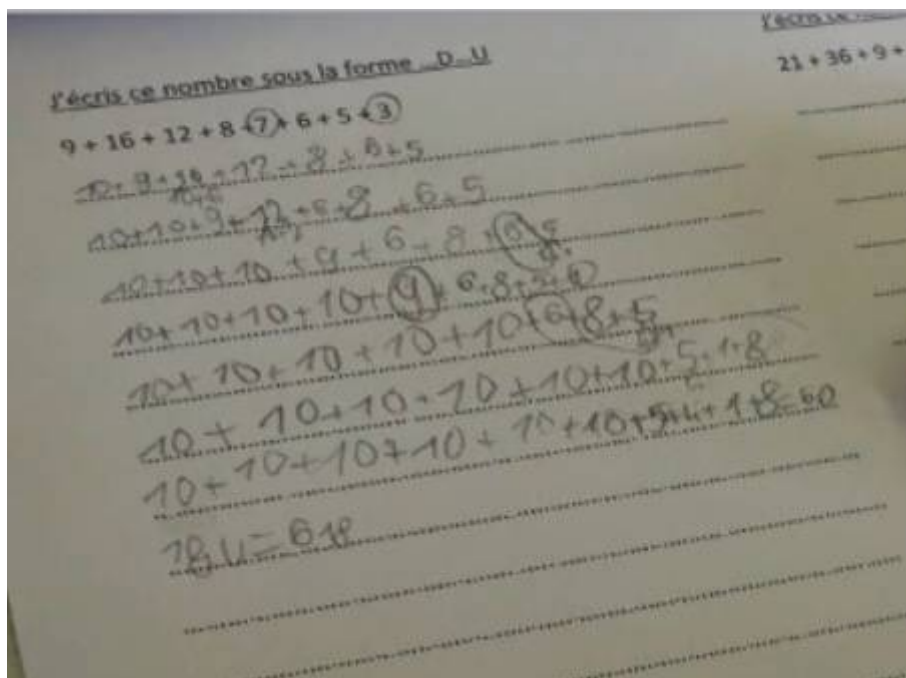 J'écris ce nombre sous la forme ...D...U
9 + 16 + 12 + 8 + 7 + 6 + 5 + 3
10 + 9 + 16 + 12 + 8 + 6 + 5
10+6
10+10+9+12+6+8+6+5
10+10+10+9+6+8+6
10+10+10+10+9+6+8+5+
10+10+10+10+10+6+8+5
10+10+10+10+10+10+5+1+8
10+10+10+10+10+10+5+4+1+8=60
18U=618
21 + 36 + 9 +